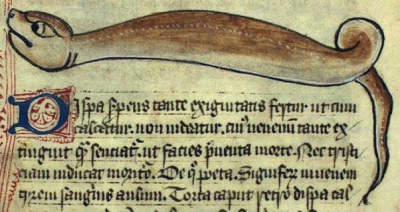 Dispa s̃pens tante exiguitatis fertur ut cum
calcatur. non uideatur. cui᷒ uenenum tante ex
tinguit q̃ senciat᷑. ut facies p̃uenta morte. Nec tristi
ciam inducat morit᷑o. De qͦ poeta. Signifer̃ iuuenem
tyrreni sanguĩs aulum. Torta caput retro dispa cal